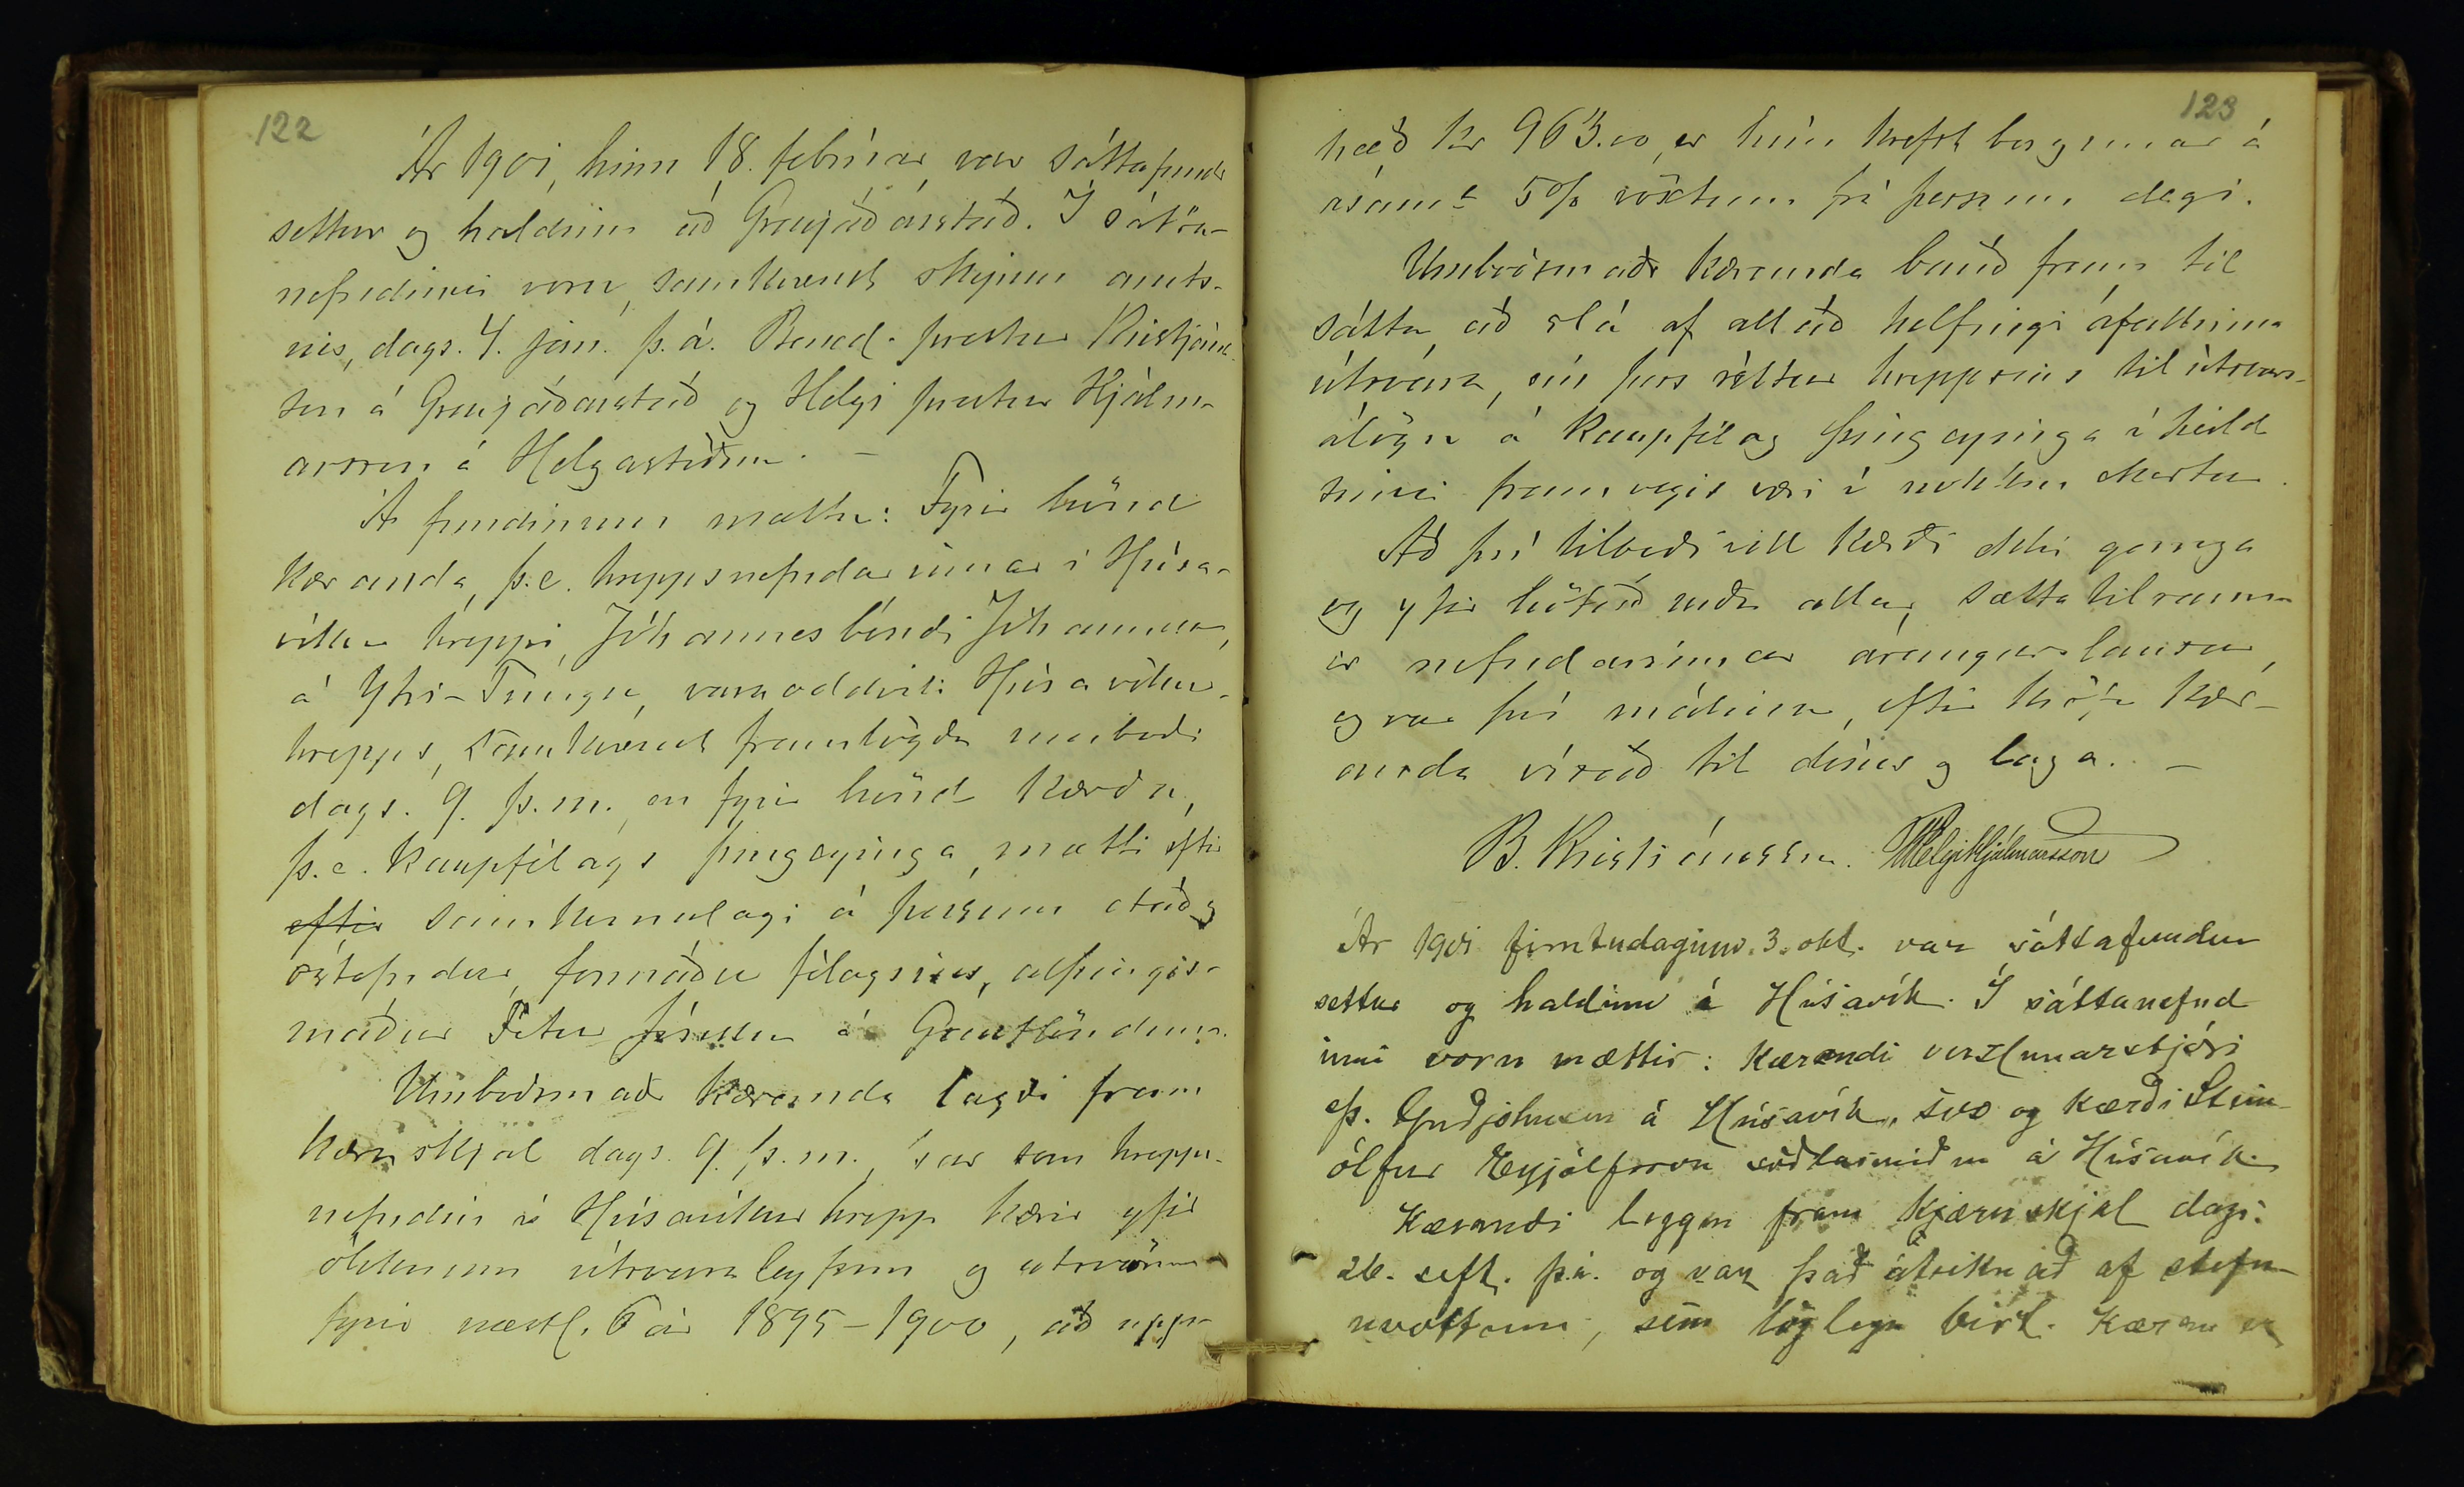 122
Ár 1901, hinn 18. febrúar, var sáttafundr
settur og haldinn að Grenjaðarstað. Í sátta-
nefndinni voru, samkvæmt skipun amts-
ins, dags. 4. jan. þ. á. Bened. prestur Kristjáns-
son á Grenjaðarstað og Helgi prestur Hjálm-
arsson á Helgastöðum. –
Á fundinum mættu: Fyrir hönd
kæranda, þ. e. hreppsnefndarinnar í Húsa-
víkur hreppi, Jóhannes bóndi
á Ytri-Tungu, varaoddviti Húsavíkur-
hrepps, samkvæmt framlögðu umboði
dags. 9. þ. m., en fyrir hönd kærða,
þ. e. Kaupfélags Þingeyinga, mætti eftir
eftir samkomulagi á þessum stað og
formaður félagsins, alþingis-
maður Petur Jónsson á Gautlöndum.
Umboðsmaðr kæranda lagði fram
kæruskjal dags. 9. þ. m., þar sem hrepps-
nefndin í Húsavíkurhrepp kærir yfir
óteknum útsvara og útsvörum
fyrir næstl. 6 ár 1895–1900, að upp-
123
hæð kr 963.00, er hún krefst borgunar á
ásamt 5% vöxtum frá þessum degi.
Umboðsmaðr kæranda bauð fram til
sátta, að slá af allað helfingi áfallinna
útsvara, sé réttur hreppsins til útsvars-
álögu á Kaupfélag Þingeyinga í heild
sinni framvegis væri í nokkru skertur.
Að því tilboði vill kærði ekki ganga
og yfir höfuð urðu allar sættatilraun-
ir nefndarinnar árangurslausar,
og var því málinu, eftir kröfu kær-
anda vísað til dóms og laga. –
B. Kristjánsson. Helgi Hjálmarsson
Ár 1901 fimtudaginn 3. okt. var sáttafundur
settur og haldinn á Húsavík. Í sáttanefnd
inni voru mættir: Kærandi verzlunarstjóri
Sþ. Guðjohnsen á Húsavík, svo og kærði Stein-
ólfur Eyjólfsson söðlasmiður á Húsavík.
Kærandi leggur fram kjæruskjal dags.
26. seft. þ.á. og var það áteiknað af stefnu-
vottum, sem löglega birt. Kæran er